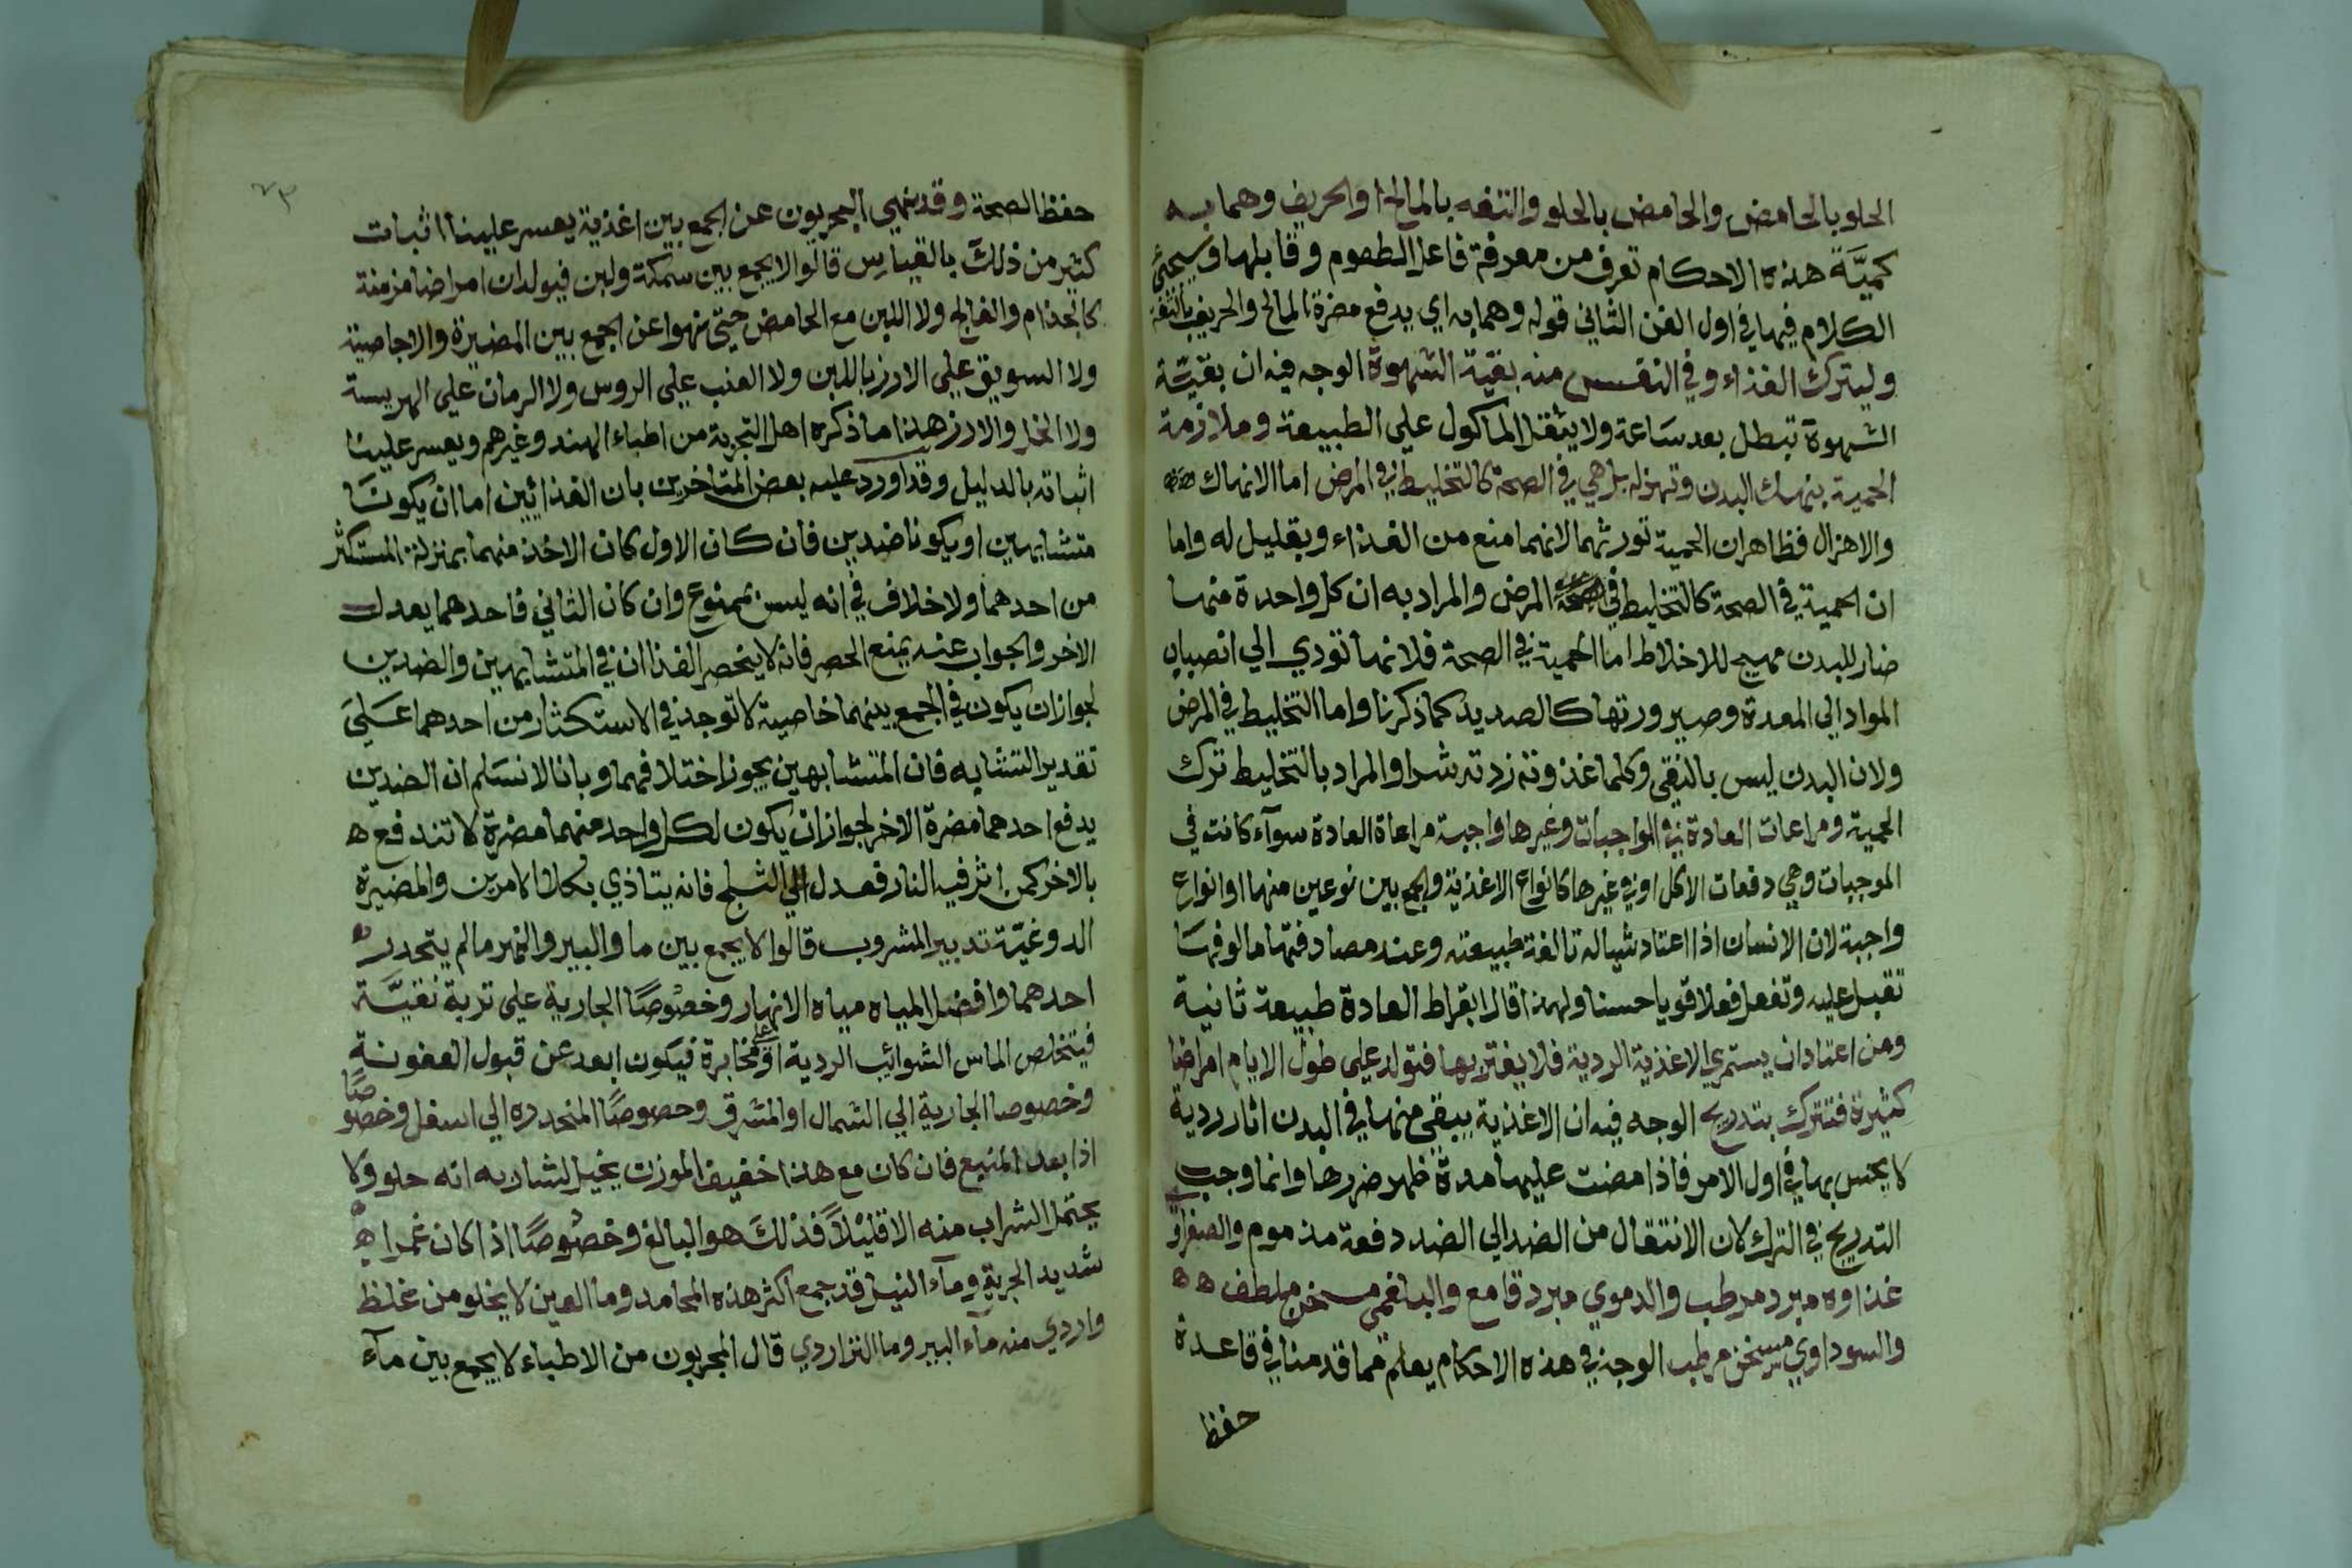 الحلو بالحامض والحامض بالحلو والتفه بالمالح او الحريف وهما به
كميَّة هذه الاحكام تعرف من معرفة فاعل الطعوم وقابلها وسيجئ
الكلام فيها في اول الفن الثاني قوله وهما به اي يدفع مضرة المالح والحريف بالتفه
وليترك الغذاء وفي النفس منه بقية الشهوة الوجه فيه ان بقيّة
الشهوة تبطل بعد ساعة ولا يثقل الماكول علي الطبيعة وملازمة
الحمية ينهك البدن وتهزله بل هي في الصحة كالتخليط في المرض اما الانهاك
والاهزال فظاهر ان الحمية تورثهما لانهما منع من الغذاء وبقليل له واما
ان الحمية في الصحة كالتخليط في المرض والمراد به ان كل واحدة منهما
ضار للبدن مهيج للاخلاط اما الحمية في الصحة فلانها تودي الي انصباب
المواد الي المعدة وصيرورتها كالصديد كما ذكرنا واما التخليط في المرض
ولان البدن ليس بالنقي وكلما غذوته زدته شرا والمراد بالتخليط ترك
الحمية ومراعات العادة في الواجبات وغيرها واجبة مراعاة العادة سوآء كانت في
الموجبات وهي دفعات الاكل او في غيرها كانواع الاغذية والجمع بين نوعين منهما او انواع
واجبة لان الانسان اذا اعتاد شيا له تالفة طبيعته وعند مصادفتها مالوفها
تقبل عليه وتفعل فعلا قويا حسنا ولهذا قال ابقراط العادة طبيعة ثانية
ومن اعتاد ان يستمري الاغذية الردية فلا يغتر بها فتولد علي طول الايام امراضا
كثيرة فتترك بتدريج الوجه فيه ان الاغذية يبقي منها في البدن اثار ردية
لا يحس بها في اول الامر فاذا مضت عليها مدة ظهر ضررها وانما وجب
التدريج في الترك لان الانتقال من الضد الي الضد دفعة مذموم والصفراوي
غذاوه مبرد مرطب والدموي مبرد قامع والبلغمي مسخن ملطف ه ه
والسوداوي مسخن مرطب الوجه في هذه الاحكام يعلم مما قدمنا في قاعدة
حفظ
٧٣
حفظ الصحة وقد ينهي المجربون عن الجمع بين اغذية يعسر علينا اثبات
كثير من ذلك بالقياس قالوا لا يجمع بين سمكة ولبن فيولدان امراضا مزمنة
كالجذام والفالج ولا اللبن مع الحامض حتي نهوا عن الجمع بين المضيرة والاجاصية
ولا السويق علي الارز باللبن ولا العنب علي الروس ولا الرمان علي الهريسة
ولا الخل والارز هذا ما ذكره اهل التجربة من اطباء الهند وغيرهم ويعسر علينا
اثباته بالدليل وقد اورد عليه بعض المتاخرين بان الغذائين اما ان يكونا
متشابهين او يكونا ضدين فان كان الاول كان الاخذ منهما بمنزلة المستكثر
من احدهما ولا خلاف في انه ليس بممنوع وان كان الثاني فاحدهما يعدل
الاخر والجواب عنه بمنع الحصر فانه لا ينحصر الغذاان في المتشابهين والضدين
لجواز ان يكون في الجمع بينهما خاصية لا توجد في الاستكثار من احدهما علي
تقدير التشابه فان المتشابهين يجوز اختلافهما وبانا لا نسلم ان الضدين
يدفع احدهما مضرة الاخر لجواز ان يكون لكل واحد منهما مضرة لا تندفع ه
بالاخر كمن اثر فيه النار فعدل الي الثلج فانه يتاذي بكل الامرين والمضيرة
الدوغيّة تدبير المشروب قالوا لا يجمع بين ما والبير والنهر ما لم يتحدر
احدهما وافضل المياه مياه الانهار وخصوصًا الجارية علي تربة نقيَّة
فيتخلص الماس الشوائب الردية او علي حجارة فيكون ابعد عن قبول العفونة
وخصوصا الجارية الي الشمال او المشرق وحصوصًا المنحدره الي اسفل وخصوصًا
اذا بعد المنبع فان كان مع هذا خفيف الموزن يخيل لشاربه انه حلو ولا
يحتمل الشراب منه الا قليلاً فذلك هو البالغ وخصوصًا اذا كان غمرا ه
شديد الجرية وماء النيل قد جمع اكثر هذه المحامد وما العين لا يخلو من غلظ
واردي منه مآء البير وما النز اردي قال المجربون من الاطباء لا يجمع بين مآء